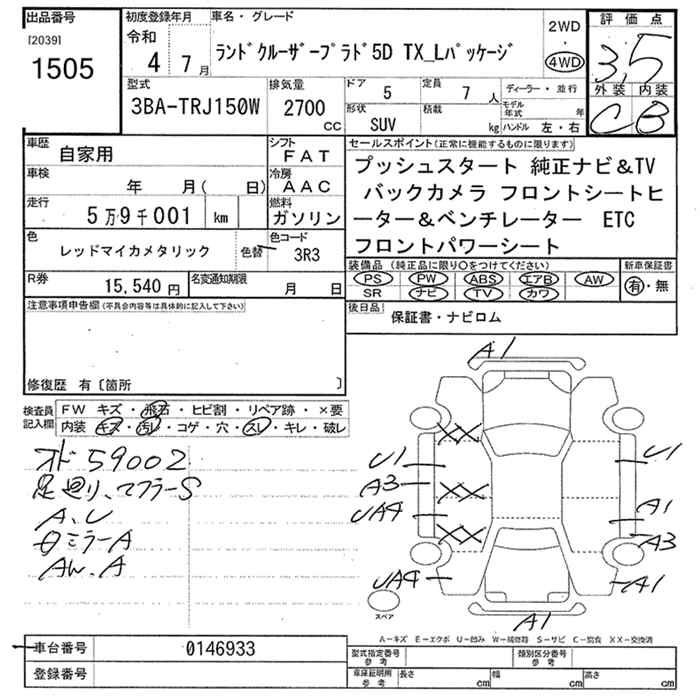 出品番号
[2039]
1505
初度登録年月
令和
4 7月
車名・グレード
ランドクルーザープラド5D TX_Lパッケージ
2WD
・
4WD
評価点
3.5
外装 内装
C B
型式
3BA-TRJ150W
排気量
2700
CC
ドア
5
定員
7 人
形状
SUV
積載
kg
ディーラー・並行
モデル年式 年
ハンドル 左・右
車歴
自家用
シフト
FAT
車検
年 月( 日)
冷房
AAC
走行
5万9千001 km
燃料
ガソリン
色
レッドマイカメタリック
色替
色コード
3R3
R券
15,540 円
名変通知期限
月 日
セールスポイント(正常に機能するものに限ります)
プッシュスタート 純正ナビ&TV
バックカメラ フロントシートヒ
ーター&ベンチレーター ETC
フロントパワーシート
装備品(純正品に限り○をつけてください)
PS PW ABS エアB AW
SR ナビ TV カワ
新車保証書
有・無
後日品
保証書・ナビロム
注意事項申告欄(不具合内容等は具体的に記入して下さい)
修復歴 有〔箇所 〕
検査員記入欄
FW キズ・飛石・ヒビ割・リペア跡・×要
内装 キズ・汚レ・コゲ・穴・スレ・キレ・破レ
オド59002
足廻り、マフラーS
A、U
ミラーA
AW、A
A1
XX
U1
A3
XX
UA4
XX
UA4
U1
A1
A3
A1
A1
スペア
A-キズ E-エクボ U-凹み W-補修跡 S-サビ C-腐食 XX-交換済
車台番号
0146933
登録番号
型式指定番号
参考
類別区分番号
参考
車庫証明用
参考
長さ cm
幅 cm
高さ cm